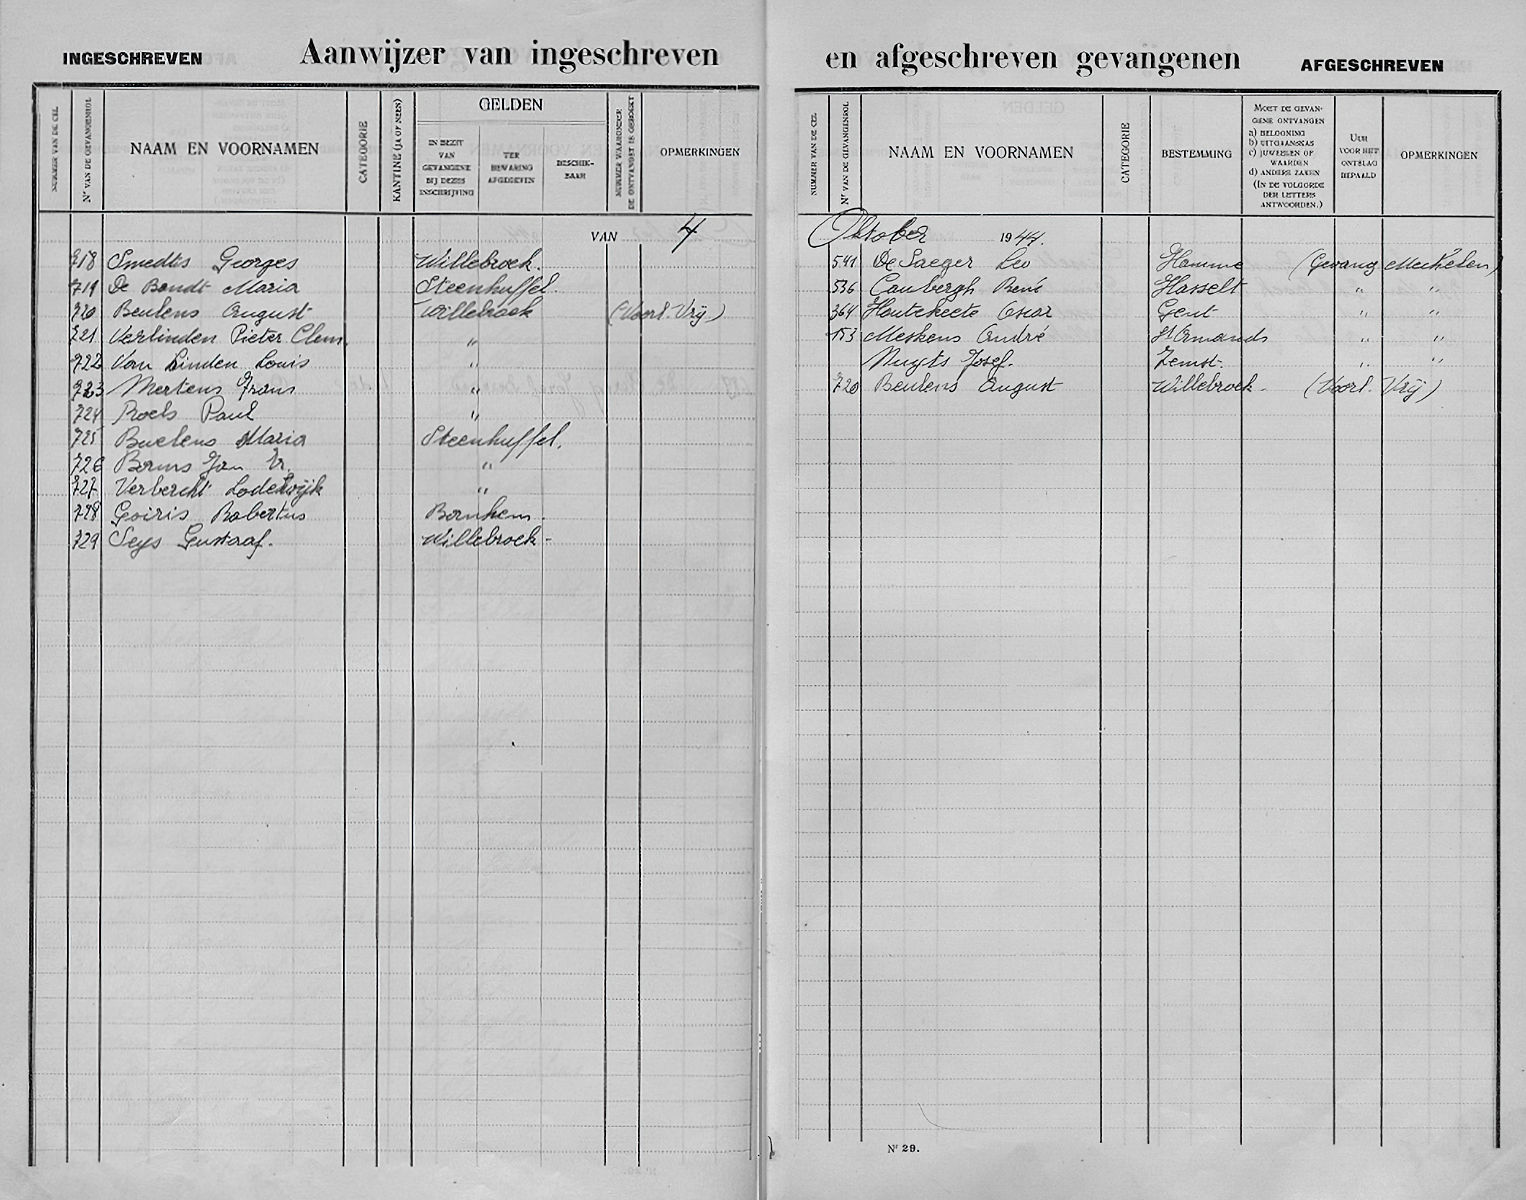 INGESCHREVEN
Aanwijzer van ingeschreven
NUMMER VAN DE CEL
Nr VAN DE GEVANGENROL
NAAM EN VOORNAMEN
CATEGORIE
KANTINE (JA OF NEEN)
GELDEN
IN BEZIT VAN GEVANGENE BIJ DEZES INSCHRIJVING
TER BEWARING AFGEGEVEN
BESCHIKBAAR
NUMMER WAARONDER DE ONTVANGST IS GEBOEKT
OPMERKINGEN
VAN 4
718 Smedts Georges Willebroek.
719 De Bondt Maria Steenhuffel.
720 Beulens August Willebroek (Voorl. Vrij)
721 Verlinden Pieter Clem. "
722 Van Linden Louis "
723 Mertens Frans "
724 Roels Paul "
725 Buelens Maria Steenhuffel.
726 Borms Jan Fr. "
727 Verbercht Lodewijk "
728 Goiris Robertus Bornhem.
729 Seys Gustaaf. Willebroek -
en afgeschreven gevangenen
AFGESCHREVEN
NUMMER VAN DE CEL
Nr VAN DE GEVANGENROL
NAAM EN VOORNAMEN
CATEGORIE
BESTEMMING
MOET DE GEVANGENE ONTVANGEN
a) BELOONING
b) UITGAANSKAS
c) JUWEELEN OF WAARDEN
d) ANDERE ZAKEN
(IN DE VOLGORDE DER LETTERS ANTWOORDEN.)
UUR VOOR HET ONTSLAG BEPAALD
OPMERKINGEN
Oktober 1944.
541 De Saeger Leo Hamme (Gevang Mechelen)
536 Caubergh René Hasselt " "
364 Houtekeete Oscar Gent " "
153 Meskens André St Amands " "
Nuyts Josef. Zemst. " "
720 Beulens August Willebroek - (Voorl. Vrij)
Nr 29.